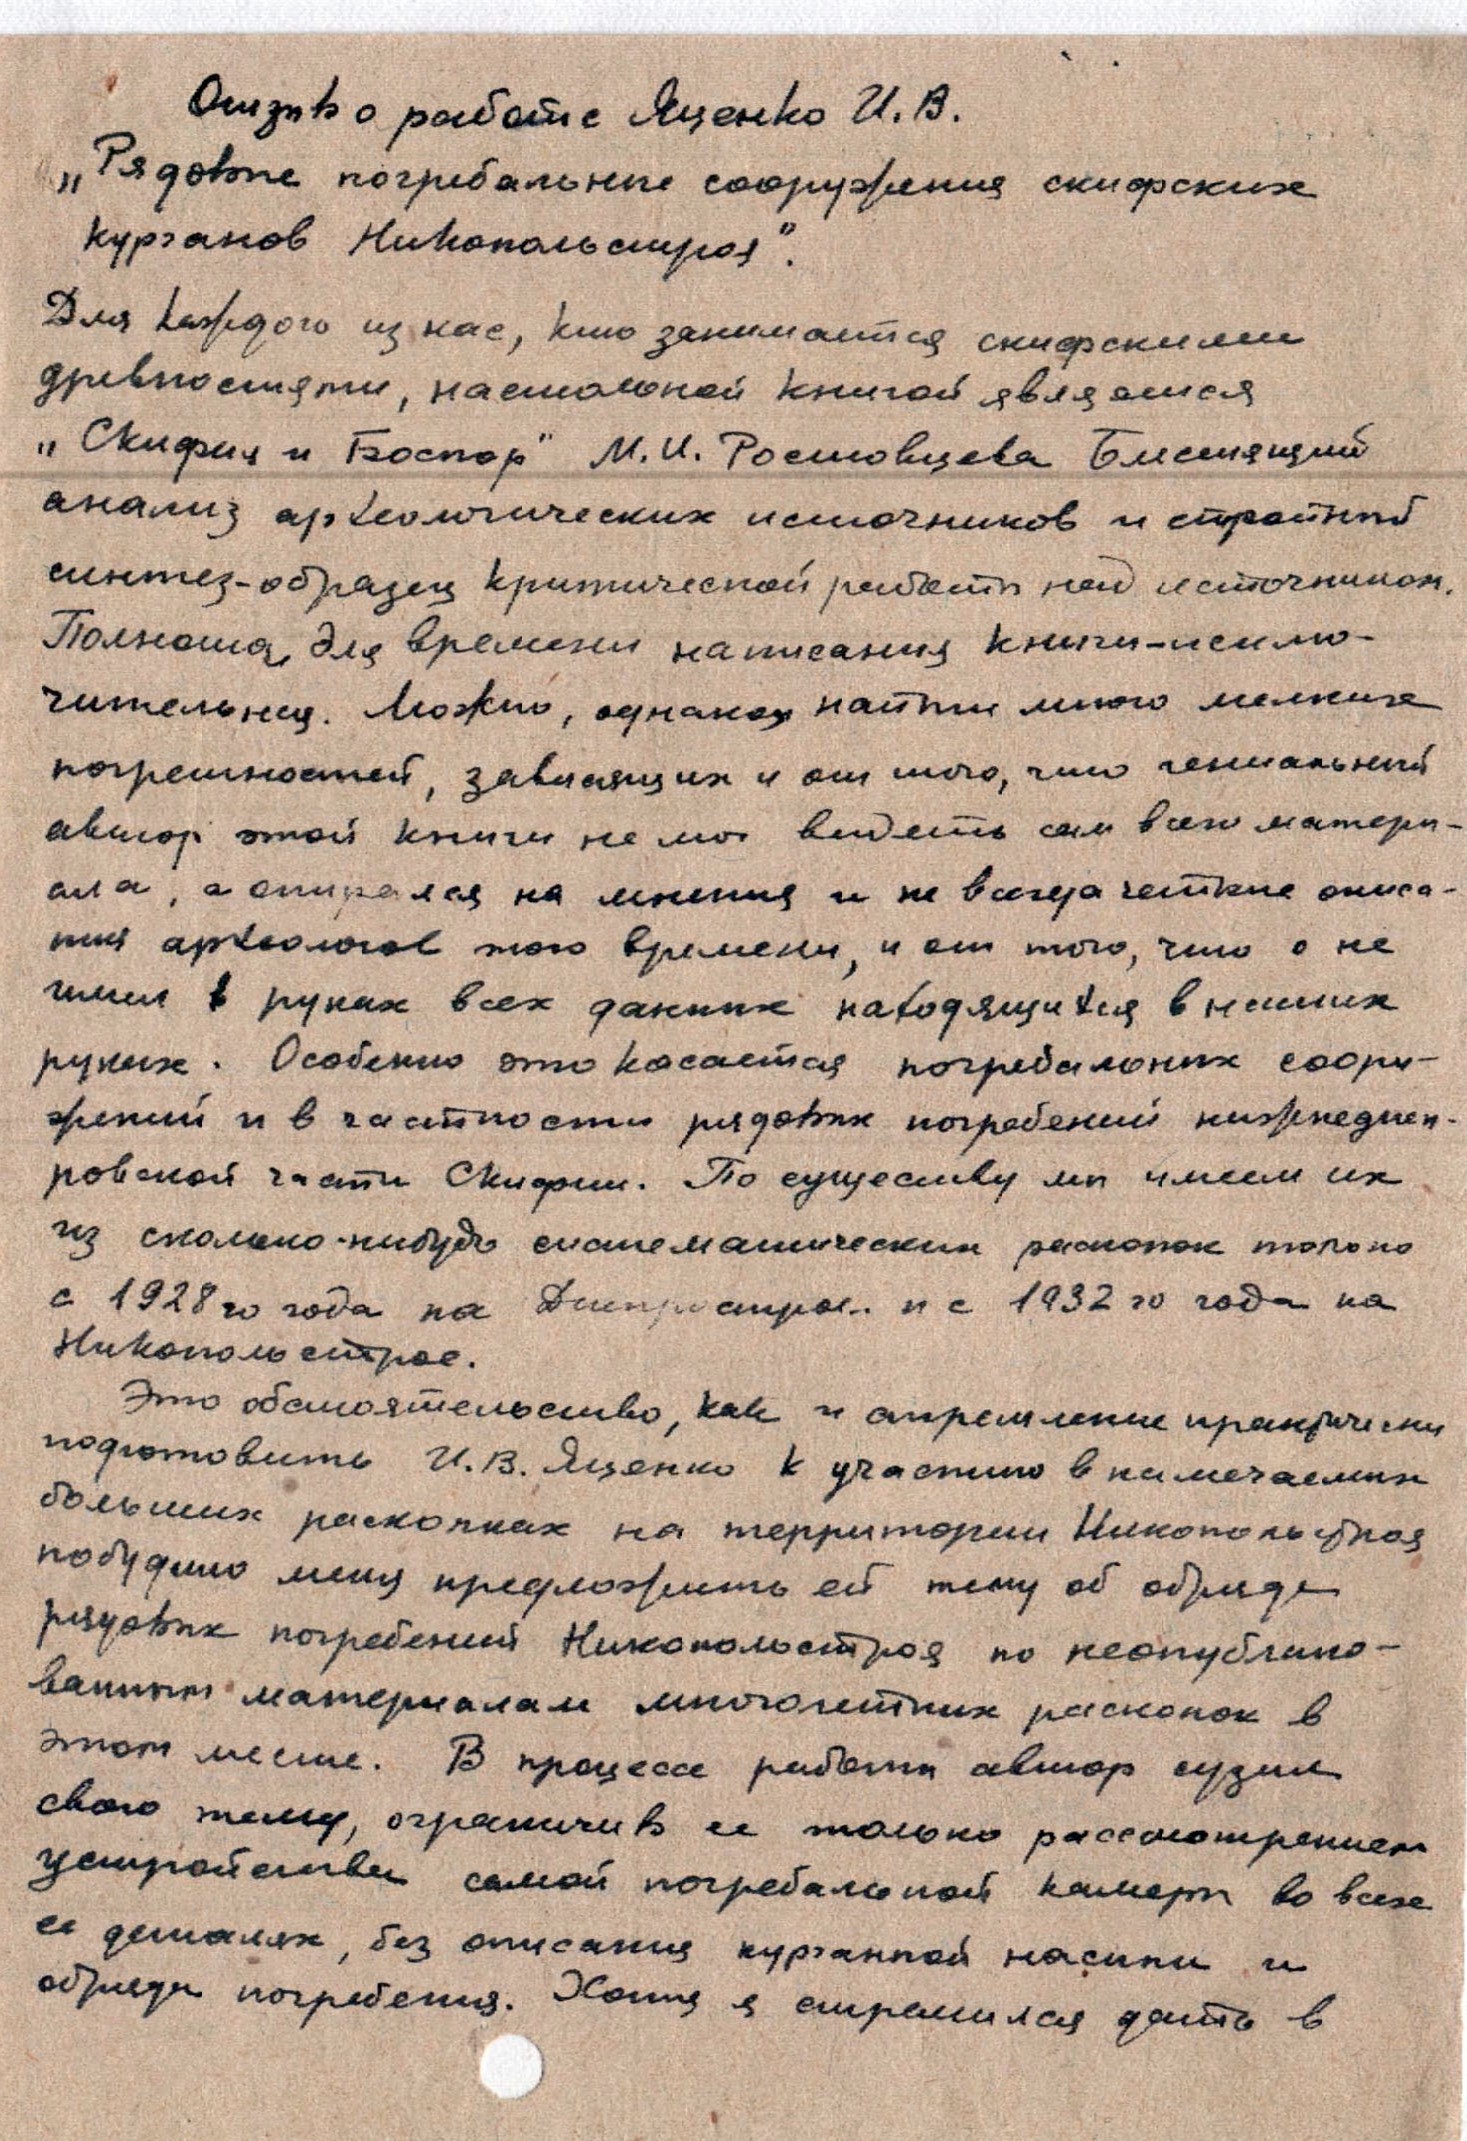 Отзыв о работе Яценко И.В.
„Рядовые погребальные сооружения скифских
курганов Никопольстроя".
Для каждого из нас, кто занимается скифскими
древностями, настольной книгой является
„Скифия и Боспор" М.И. Ростовцева Блестящий
анализ археологических источников и стройный
синтез-образец критической работы над источником.
Полнота для времени написания книги-исклю-
чительная. Можно, однако найти много мелких
погрешностей, зависящих и от того, что гениальный
автор этой книги не мог видеть сам всего матери-
ала, а опирался на мнения и не всегда четкие описа-
ния археологов того времени, и от того, что о не
имел в руках всех данных находящихся в наших
руках. Особенно это касается погребальных соору-
жений и в частности рядовых погребений нижнеднеп-
ровской части Скифии. По существу мы имеем их
из сколько-нибудь систематических раскопок только
с 1928 го года на Днепрострое и с 1932 го года на
Никопольстрое.
Это обстоятельство, как и стремление практически
подготовить И.В. Яценко к участию в намечаемых
больших раскопках на территории Никопольстроя
побудило меня предложить ей тему об обряде
рядовых погребений Никопольстроя по неопублико-
ванным материалам многолетних раскопок в
этом месте. В процессе работы автор сузил
свою тему, ограничив ее только рассмотрением
устройства самой погребальной камеры во всех
ее деталях, без описания курганной насыпи и
обряда погребения. Хотя я стремился дать в